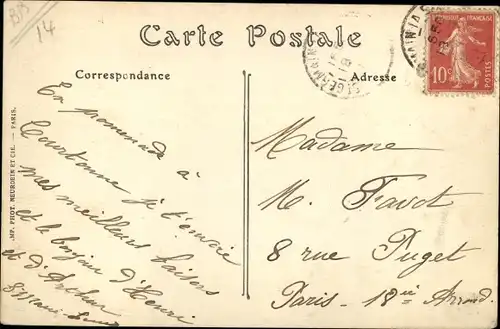 BB
14
Carte Postale
Correspondance
Adresse
ST GERMAIN
RÉPUBLIQUE FRANÇAISE
10c
POSTES
IMP. PHOT. NEURDEIN ET CIE. — PARIS.
En promenade à
Courbonne je t'envoie
mes meilleurs baisers
et le bonjour d'Henri
et d'Arthur
Madame
M. Favot
8 rue Puget
Paris - 18me Arrond.